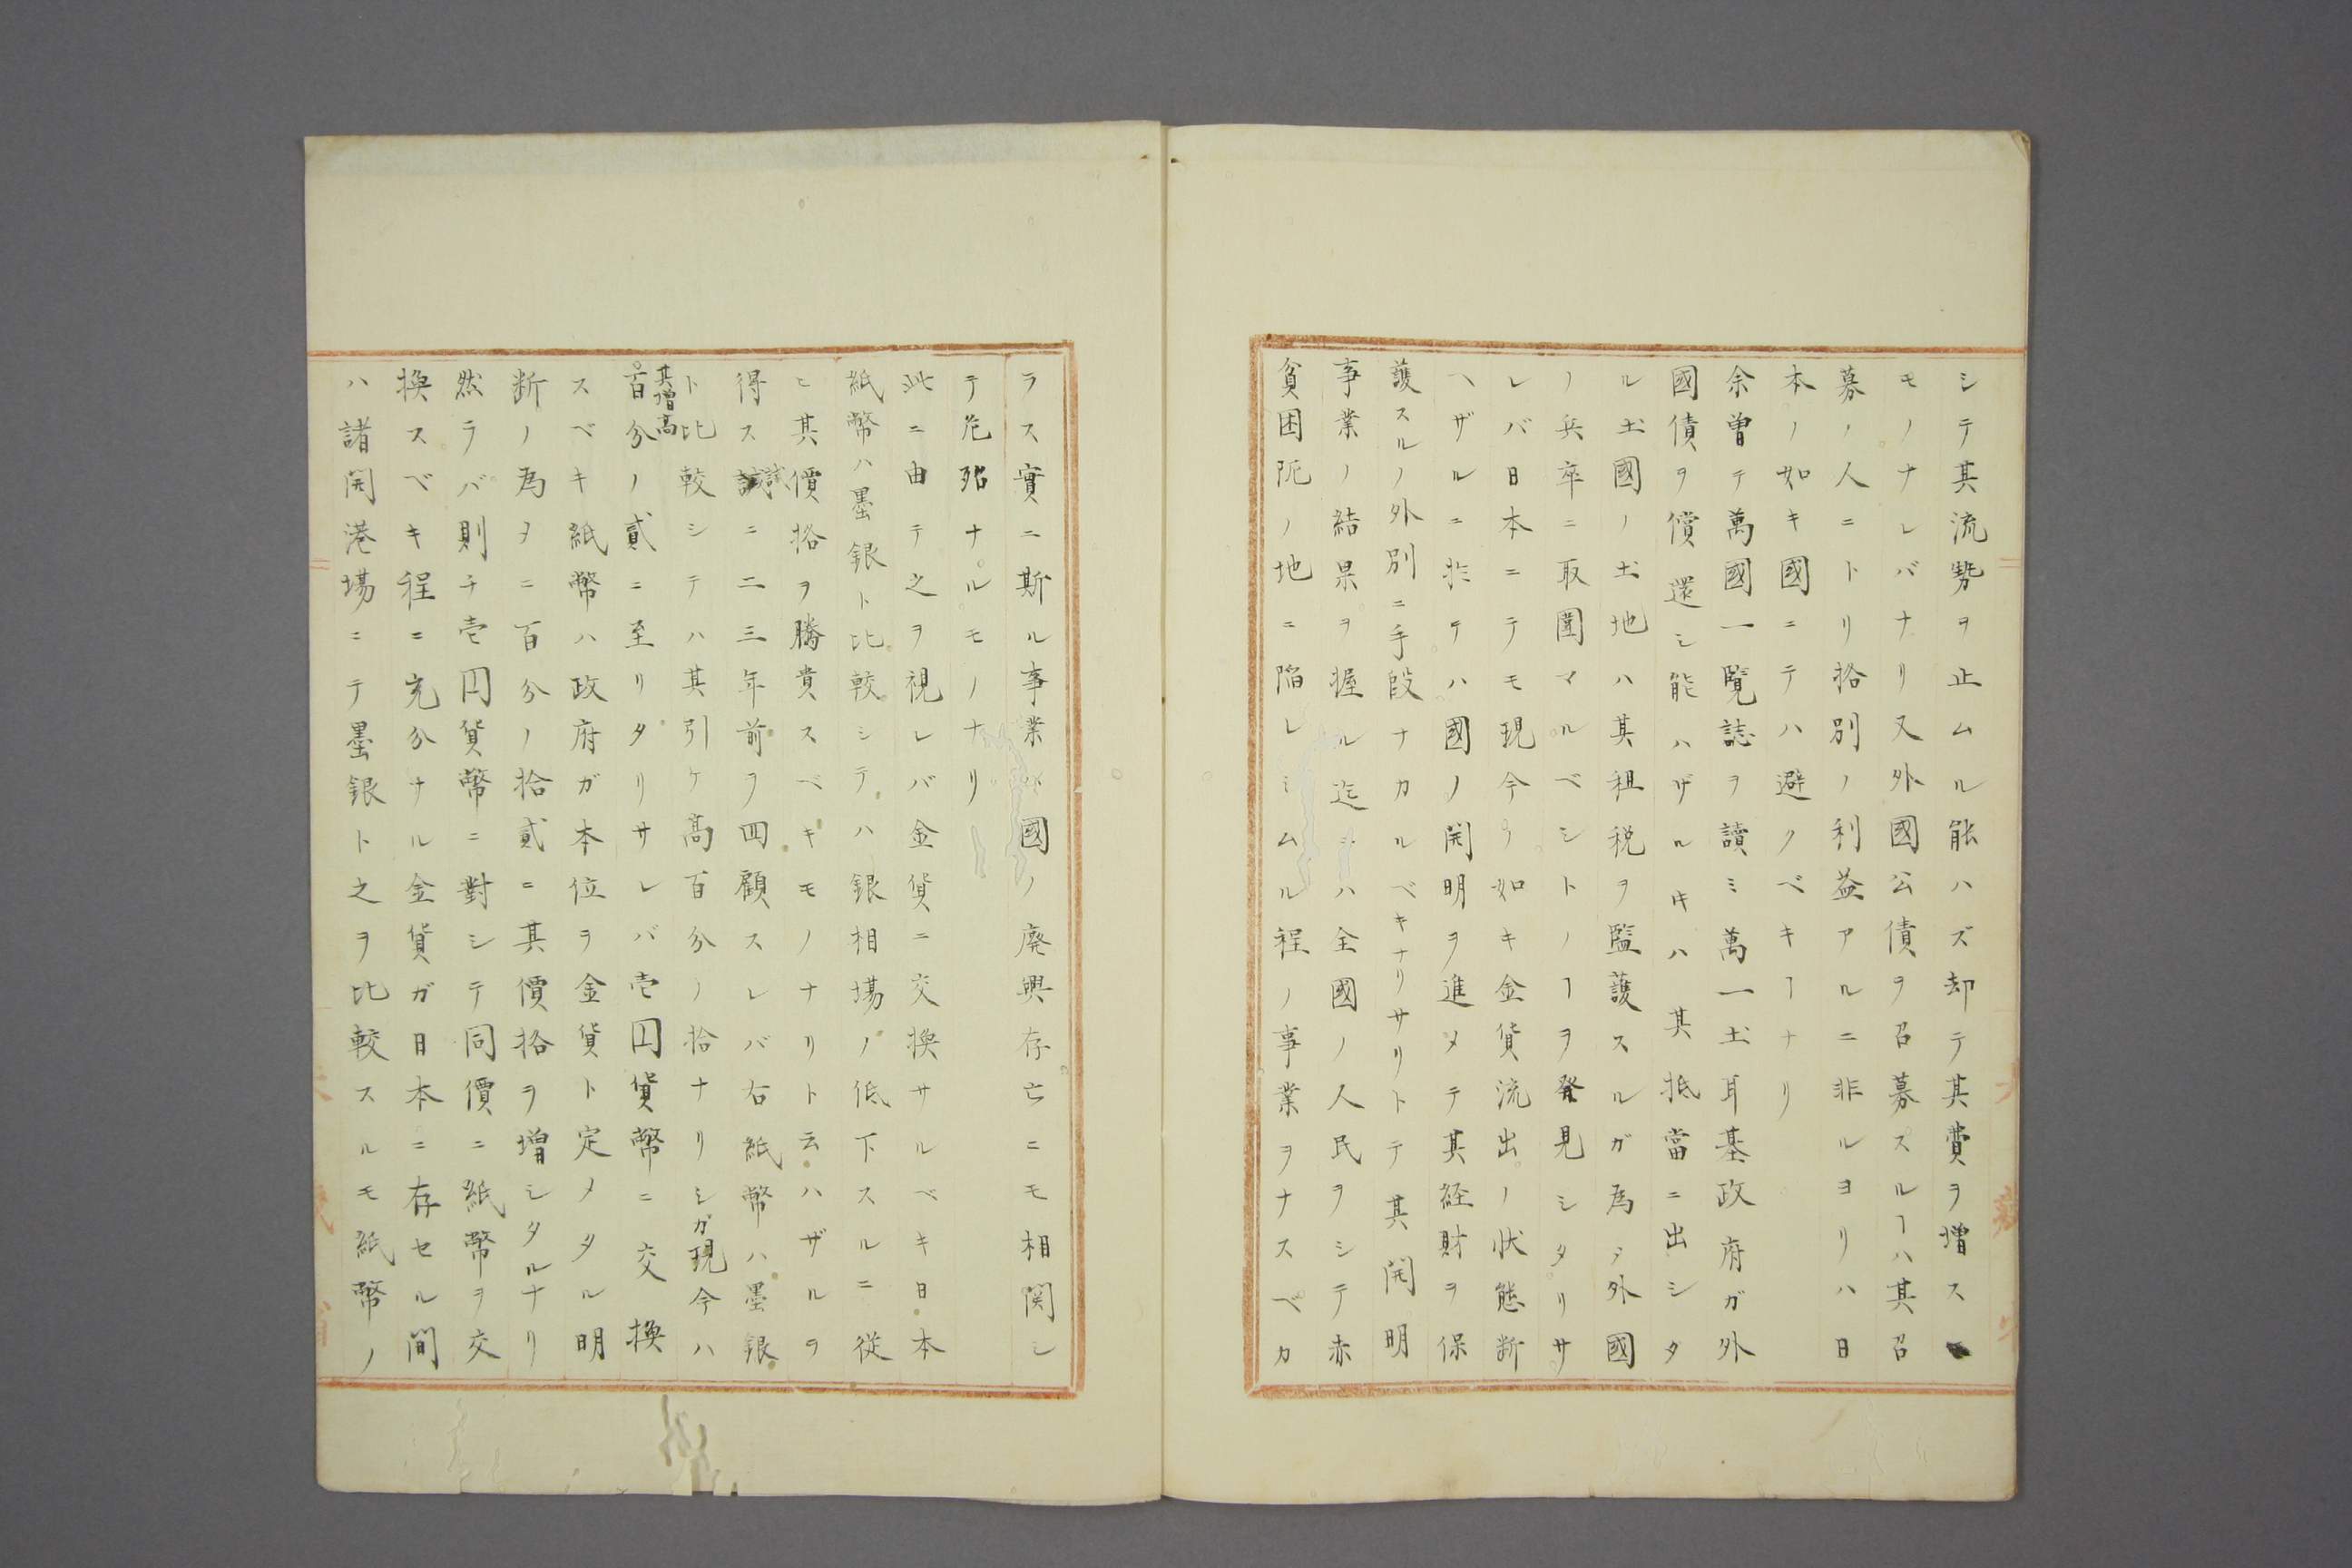 シテ其流勢ヲ止ムル能ハズ却テ其費ヲ増ス
モノナレバナリ又外國公債ヲ召募スルヿハ其召
募ノ人ニトリ拾別ノ利益アルニ非ルヨリハ日
本ノ如キ國ニテハ避クベキヿナリ
余曽テ萬國一覧誌ヲ讀ミ萬一土耳基政府ガ外
國債ヲ償還シ能ハザルキハ其抵當ニ出シタ
ル土國ノ土地ハ其租税ヲ監護スルガ為メ外國
ノ兵卒ニ取圍マルベシトノヿヲ発見シタリサ
レバ日本ニテモ現今ノ如キ金貨流出ノ状態断
ヘザルニ非テハ國ノ開明ヲ進メテ其経財ヲ保
護スルノ外別ニ手段ナカルベキナリサリトテ其開明
事業ノ結果ヲ握ル迄ニハ全國ノ人民ヲシテ赤
貧困阨ノ地ニ陥レシムル程ノ事業ヲナスベカ
ラス實ニ斯ル事業ハ國ノ廃興存亡ニモ相関シ
テ危殆ナルモノナリ
此ニ由テ之ヲ視レバ金貨ニ交換サルベキ日本
紙幣ハ墨銀ト比較シテハ銀相場ノ低下スルニ従
ヒ其價格ヲ騰貴スベキモノナリト云ハザルヲ
得ス試ニ二三年前ヲ四顧スレバ右紙幣ハ墨銀
ト比較シテハ其引ケ高百分ノ拾ナリシガ現今ハ
其増高百分ノ貳ニ至リタリサレバ壱円貨幣ニ交換
スベキ紙幣ハ政府ガ本位ヲ金貨ト定メタル明
断ノ為ヲニ百分ノ拾貳ニ其價格ヲ増シタルナリ
然ラバ則チ壱円貨幣ニ對シテ同價ニ紙幣ヲ交
換スベキ程ニ充分ナル金貨ガ日本ニ存セル間
ハ諸開港場ニテ墨銀ト之ヲ比較スルモ紙幣ノ